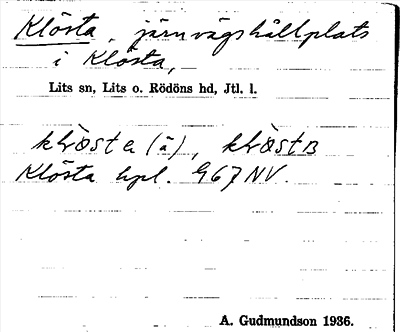 Klösta, järnvägshållplats
i Klösta,
Lits sn, Lits o. Rödöns hd, Jtl. l.
Klösta hpl. G67NV.
A. Gudmundson 1936.